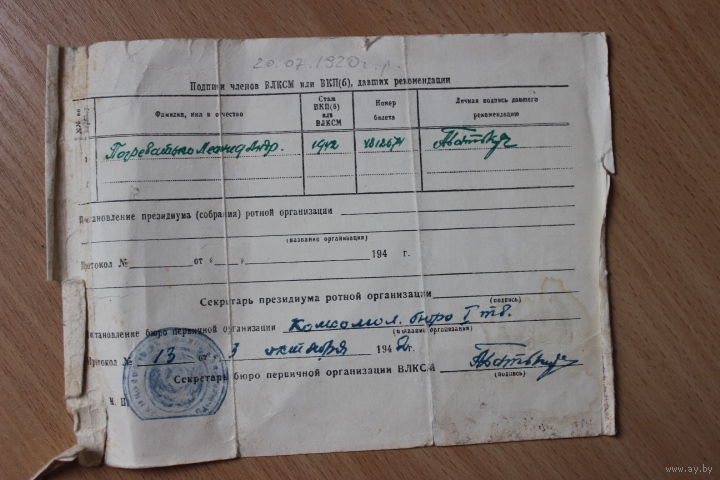 20.07.1920 г.р.
Подписи членов ВЛКСМ или ВКП(б), давших рекомендации
Фамилия, имя и отчество
Стаж ВКП(б) или ВЛКСМ
Номер билета
Личная подпись давшего рекомендацию
Леонид Андр. 1942
Постановление президиума (собрания) ротной организации
(название организации)
Протокол № от " " 194 г.
Секретарь президиума ротной организации
(подпись)
Постановление бюро первичной организации Комсомол. бюро
(название организации)
Протокол № 13 от 3 октября 1942 г.
Секретарь бюро первичной организации ВЛКСМ
(подпись)
М. П.
www.ay.by